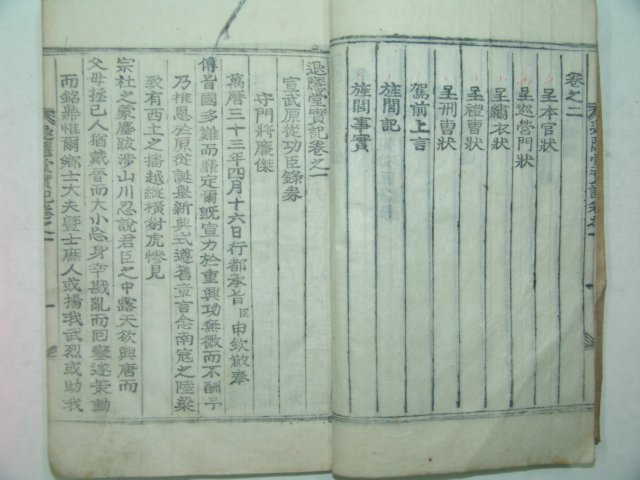 卷之二
呈本官狀
呈巡營門狀
呈繡衣狀
呈禮曹狀
呈刑曹狀
駕前上言
旌閭記
旌閭事實
退隱堂實記卷之一
宣武原從功臣錄券
守門將廉傑
萬曆三十三年四月十六日行都承旨臣申欽敬奉
傳旨國多難而靡定爾旣宣力於重興功無微而不酬予
乃推恩於原從誕擧新典式遵舊章言念南寇之陸梁
致有西土之播越縱橫豺虎慘見
宗社之蒙塵跋涉山川忍說君臣之中露天欲興唐而
父母拯己人猶戴晉而大小忘身幸戡亂而回鑾遂策勳
而銘鼎惟爾鄕士大夫曁士庶人或揚我武烈或助我